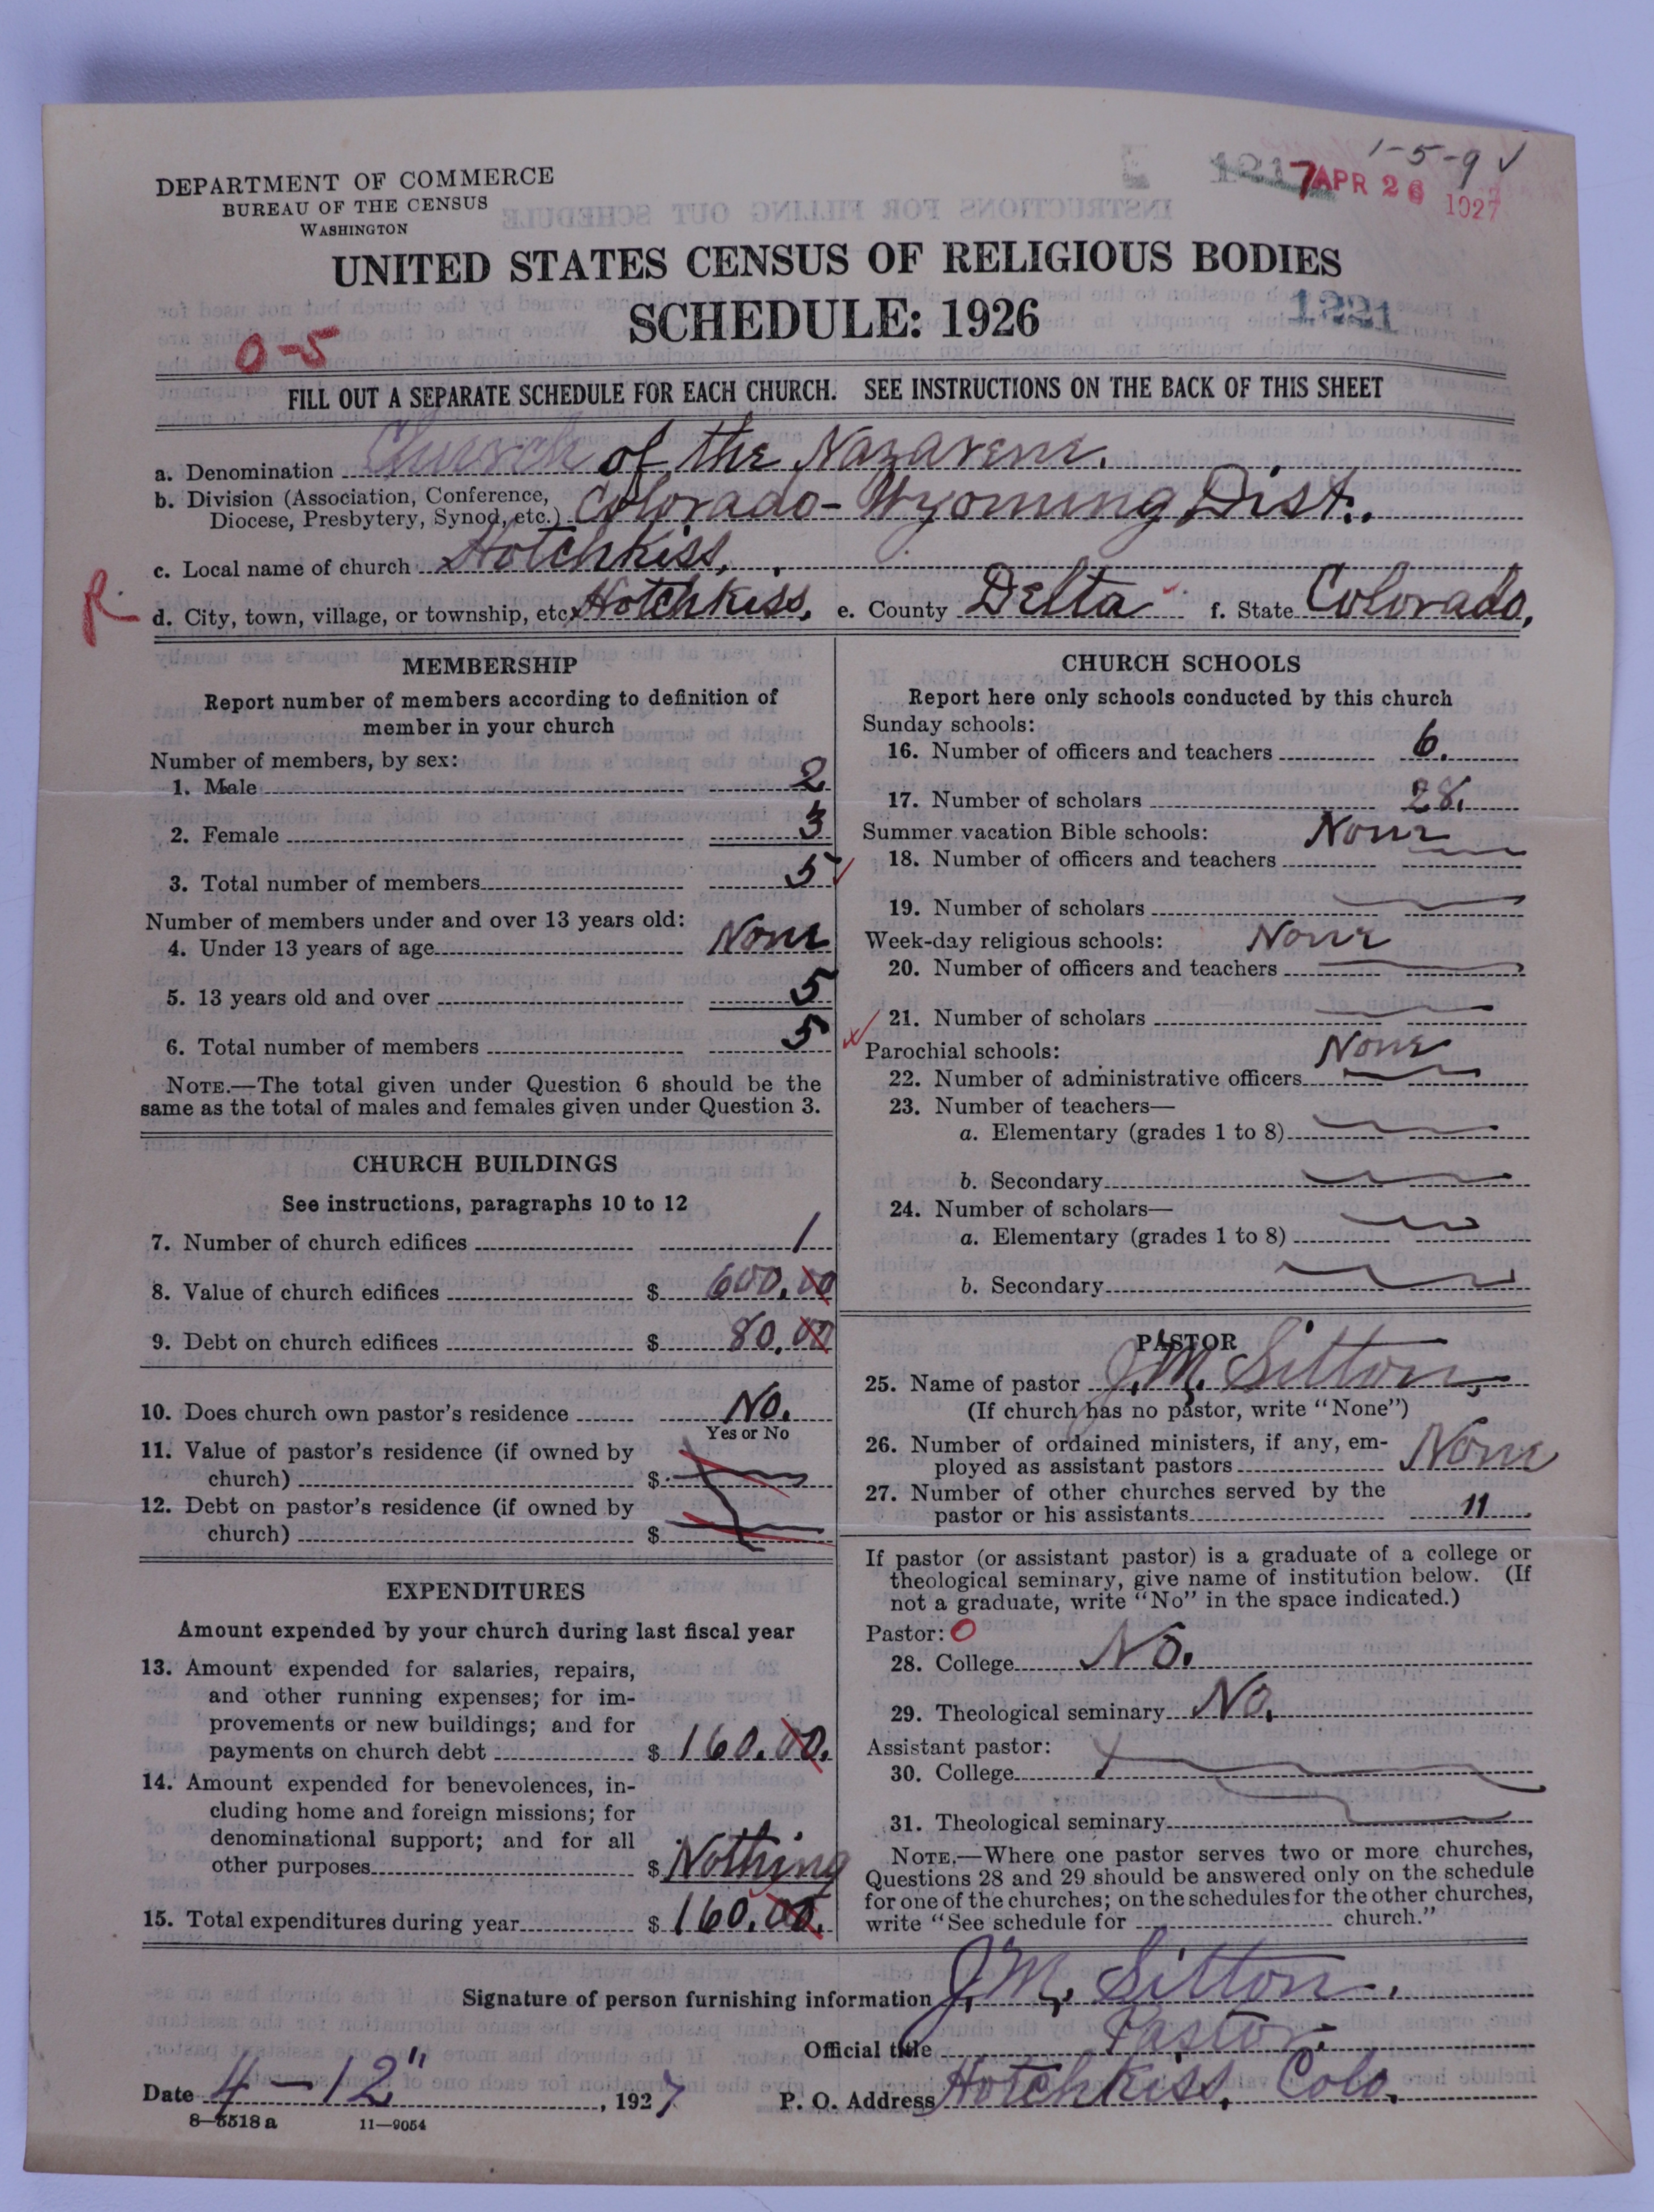 1-5-9 ✓
DEPARTMENT OF COMMERCE
BUREAU OF THE CENSUS
WASHINGTON
7 APR 26 1927
UNITED STATES CENSUS OF RELIGIOUS BODIES
SCHEDULE: 1926
1221
0-5
FILL OUT A SEPARATE SCHEDULE FOR EACH CHURCH. SEE INSTRUCTIONS ON THE BACK OF THIS SHEET
a. Denomination Church of the Nazarene.
b. Division (Association, Conference,
Diocese, Presbytery, Synod, etc.) Colorado-Wyoming Dist.
c. Local name of church Hotchkiss,
R. d. City, town, village, or township, etc. Hotchkiss, e. County Delta f. State Colorado,
MEMBERSHIP
Report number of members according to definition of
member in your church
Number of members, by sex:
1. Male 2
2. Female 3
3. Total number of members 5
Number of members under and over 13 years old:
4. Under 13 years of age None
5. 13 years old and over 5
6. Total number of members 5
NOTE.—The total given under Question 6 should be the
same as the total of males and females given under Question 3.
CHURCH BUILDINGS
See instructions, paragraphs 10 to 12
7. Number of church edifices 1
8. Value of church edifices $ 600.00
9. Debt on church edifices $ 80.00
10. Does church own pastor's residence No.
Yes or No
11. Value of pastor's residence (if owned by
church) $
12. Debt on pastor's residence (if owned by
church) $
EXPENDITURES
Amount expended by your church during last fiscal year
13. Amount expended for salaries, repairs,
and other running expenses; for im-
provements or new buildings; and for
payments on church debt $ 160.00.
14. Amount expended for benevolences, in-
cluding home and foreign missions; for
denominational support; and for all
other purposes $ Nothing
15. Total expenditures during year $ 160.00.
CHURCH SCHOOLS
Report here only schools conducted by this church
Sunday schools:
16. Number of officers and teachers 6.
17. Number of scholars 28.
Summer vacation Bible schools: None
18. Number of officers and teachers
19. Number of scholars
Week-day religious schools: None
20. Number of officers and teachers
21. Number of scholars
Parochial schools: None
22. Number of administrative officers
23. Number of teachers—
a. Elementary (grades 1 to 8)
b. Secondary
24. Number of scholars—
a. Elementary (grades 1 to 8)
b. Secondary
PASTOR
25. Name of pastor J. M. Sitton,
(If church has no pastor, write "None")
26. Number of ordained ministers, if any, em-
ployed as assistant pastors None
27. Number of other churches served by the
pastor or his assistants 11
If pastor (or assistant pastor) is a graduate of a college or
theological seminary, give name of institution below. (If
not a graduate, write "No" in the space indicated.)
Pastor: 0
28. College No.
29. Theological seminary No.
Assistant pastor:
30. College
31. Theological seminary
NOTE.—Where one pastor serves two or more churches,
Questions 28 and 29 should be answered only on the schedule
for one of the churches; on the schedules for the other churches,
write "See schedule for church."
Signature of person furnishing information J. M. Sitton.
Official title Pastor.
Date 4-12", 1927 P. O. Address Hotchkiss, Colo.
8-5518 a 11-9054